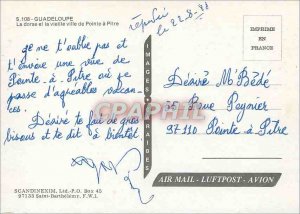 S.108 - GUADELOUPE
La darse et la vieille ville de Pointe à Pitre
répondu
le 22.8.78
IMPRIME
EN
FRANCE
je ne t'oublie pas et
t'envoie une vue de
Pointe-à-Pitre où je
passe d'agréables vacan-
ces.
Désiré te fait de gros
bisous et te dit à bientôt
IMAGES CARAIBES
Désiré M'Bédé
35 Rue Peynier
97110 Pointe à Pitre
SCANDINEXIM, Ltd.-P.O. Box 45
97133 Saint-Barthélémy, F.W.I.
AIR MAIL - LUFTPOST - AVION
CPHRASIL